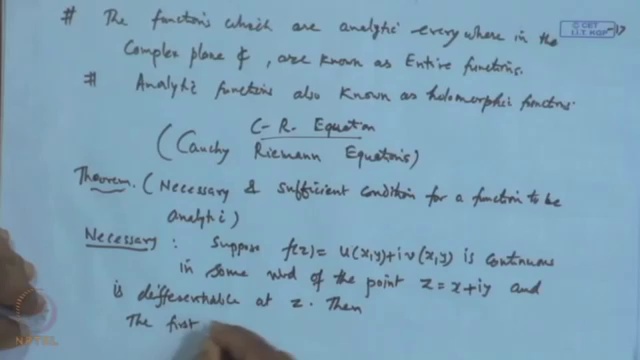 # The functions which are analytic everywhere in the
Complex plane ₵, are known as Entire functions.
# Analytic functions also known as holomorphic functions.
C-R. Equation
(Cauchy Riemann Equations)
Theorem. (Necessary & sufficient condition for a function to be
analytic)
Necessary : Suppose f(z) = u(x,y)+iv(x,y) is continuous
in some nbd of the point z = x+iy and
is differentiable at z. Then
The first
© CET
I.I.T. KGP
NPTEL